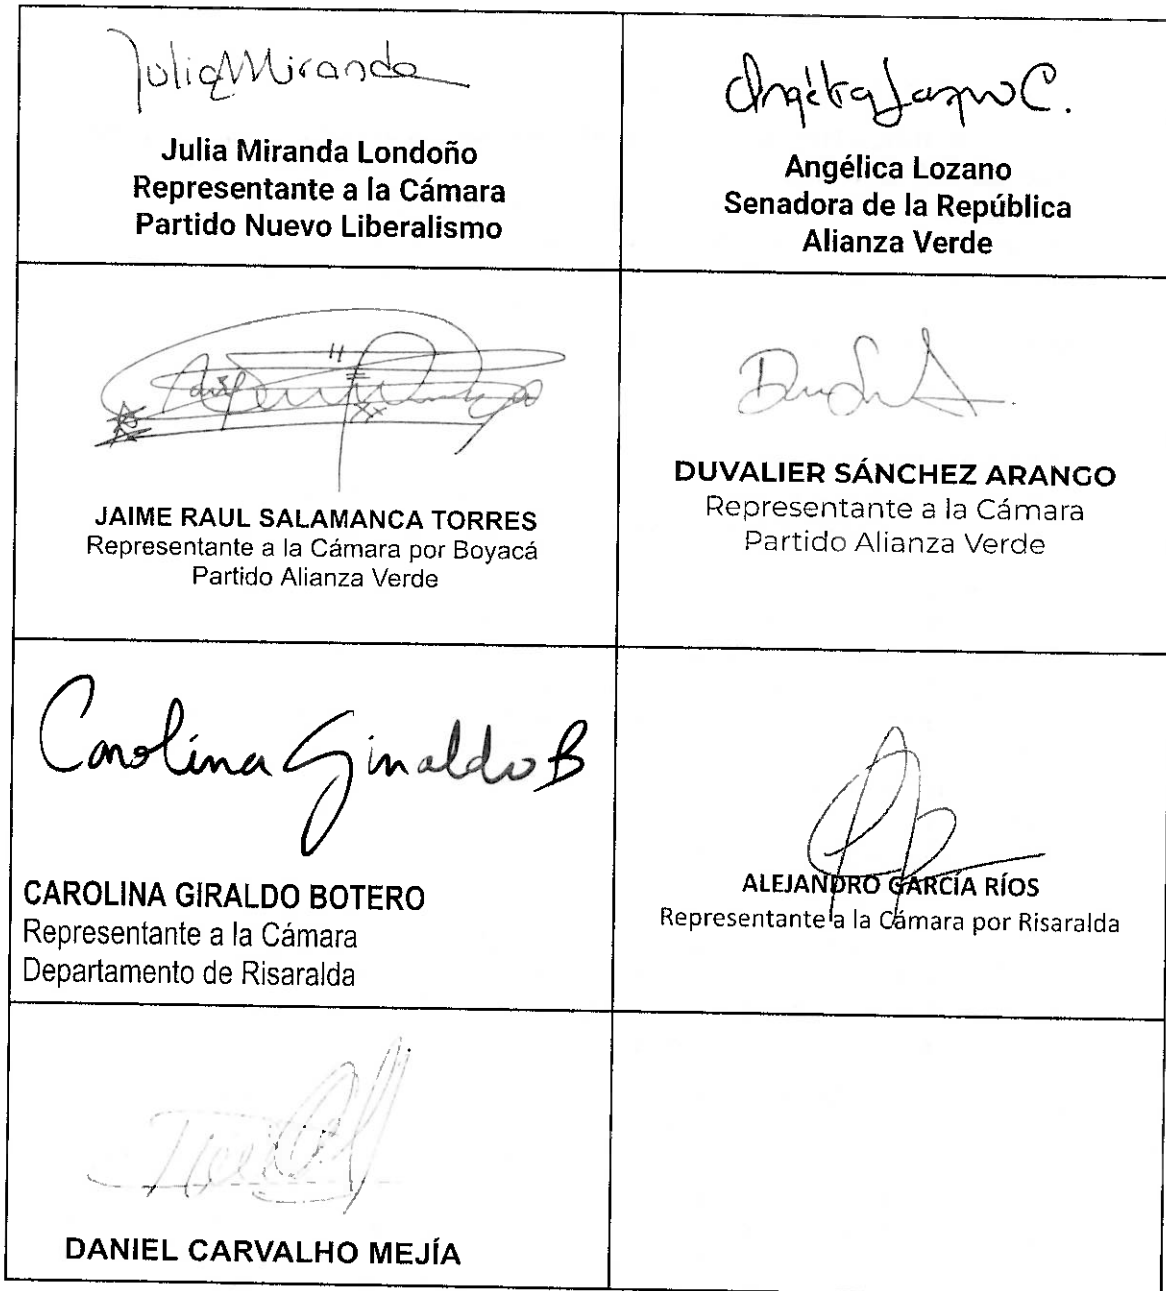 Julia Miranda
Julia Miranda Londoño
Representante a la Cámara
Partido Nuevo Liberalismo
Angélica Lozano C.
Angélica Lozano
Senadora de la República
Alianza Verde
JAIME RAUL SALAMANCA TORRES
Representante a la Cámara por Boyacá
Partido Alianza Verde
DUVALIER SÁNCHEZ ARANGO
Representante a la Cámara
Partido Alianza Verde
Carolina Giraldo B
CAROLINA GIRALDO BOTERO
Representante a la Cámara
Departamento de Risaralda
ALEJANDRO GARCÍA RÍOS
Representante a la Cámara por Risaralda
DANIEL CARVALHO MEJÍA